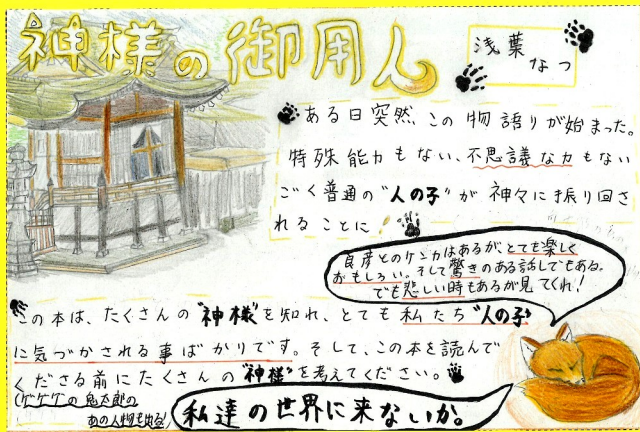 神様の御用人
浅葉
なつ
ある日突然、この物語りが始まった。
特殊能力もない、不思議な力もない
ごく普通の"人の子"が神々に振り回さ
れることに!
良彦とのケンカはあるがとても楽しく
おもしろい。そして驚きのある話しでもある。
でも悲しい時もあるが見てくれ!
この本は、たくさんの"神様"を知れ、とても私たち"人の子"
に気づかされる事ばかりです。そして、この本を読んで
くださる前にたくさんの"神様"を考えてください。
(ゲゲゲの鬼太郎の
あの人物も出る!)
私達の世界に来ないか。